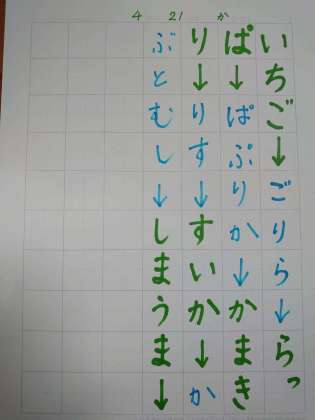 4 21 か
いちご↓ごりら↓らっ
ぱ↓ぱぷりか↓かまき
り↓りす↓すいか↓か
ぶとむし↓しまうま↓